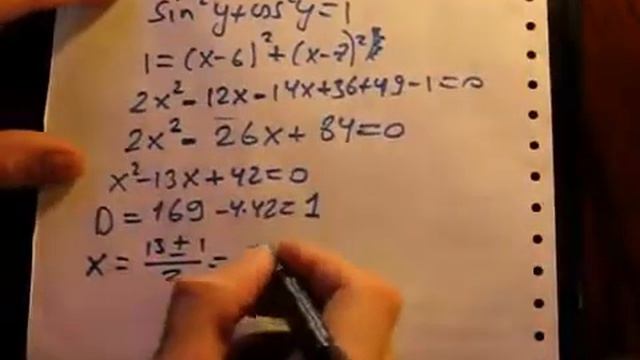 sin²y+cos²y=1
1=(x-6)²+(x-7)²
2x²-12x-14x+36+49-1=0
2x²-26x+84=0
x²-13x+42=0
D=169-4·42=1
x=\frac{13±1}{2}=